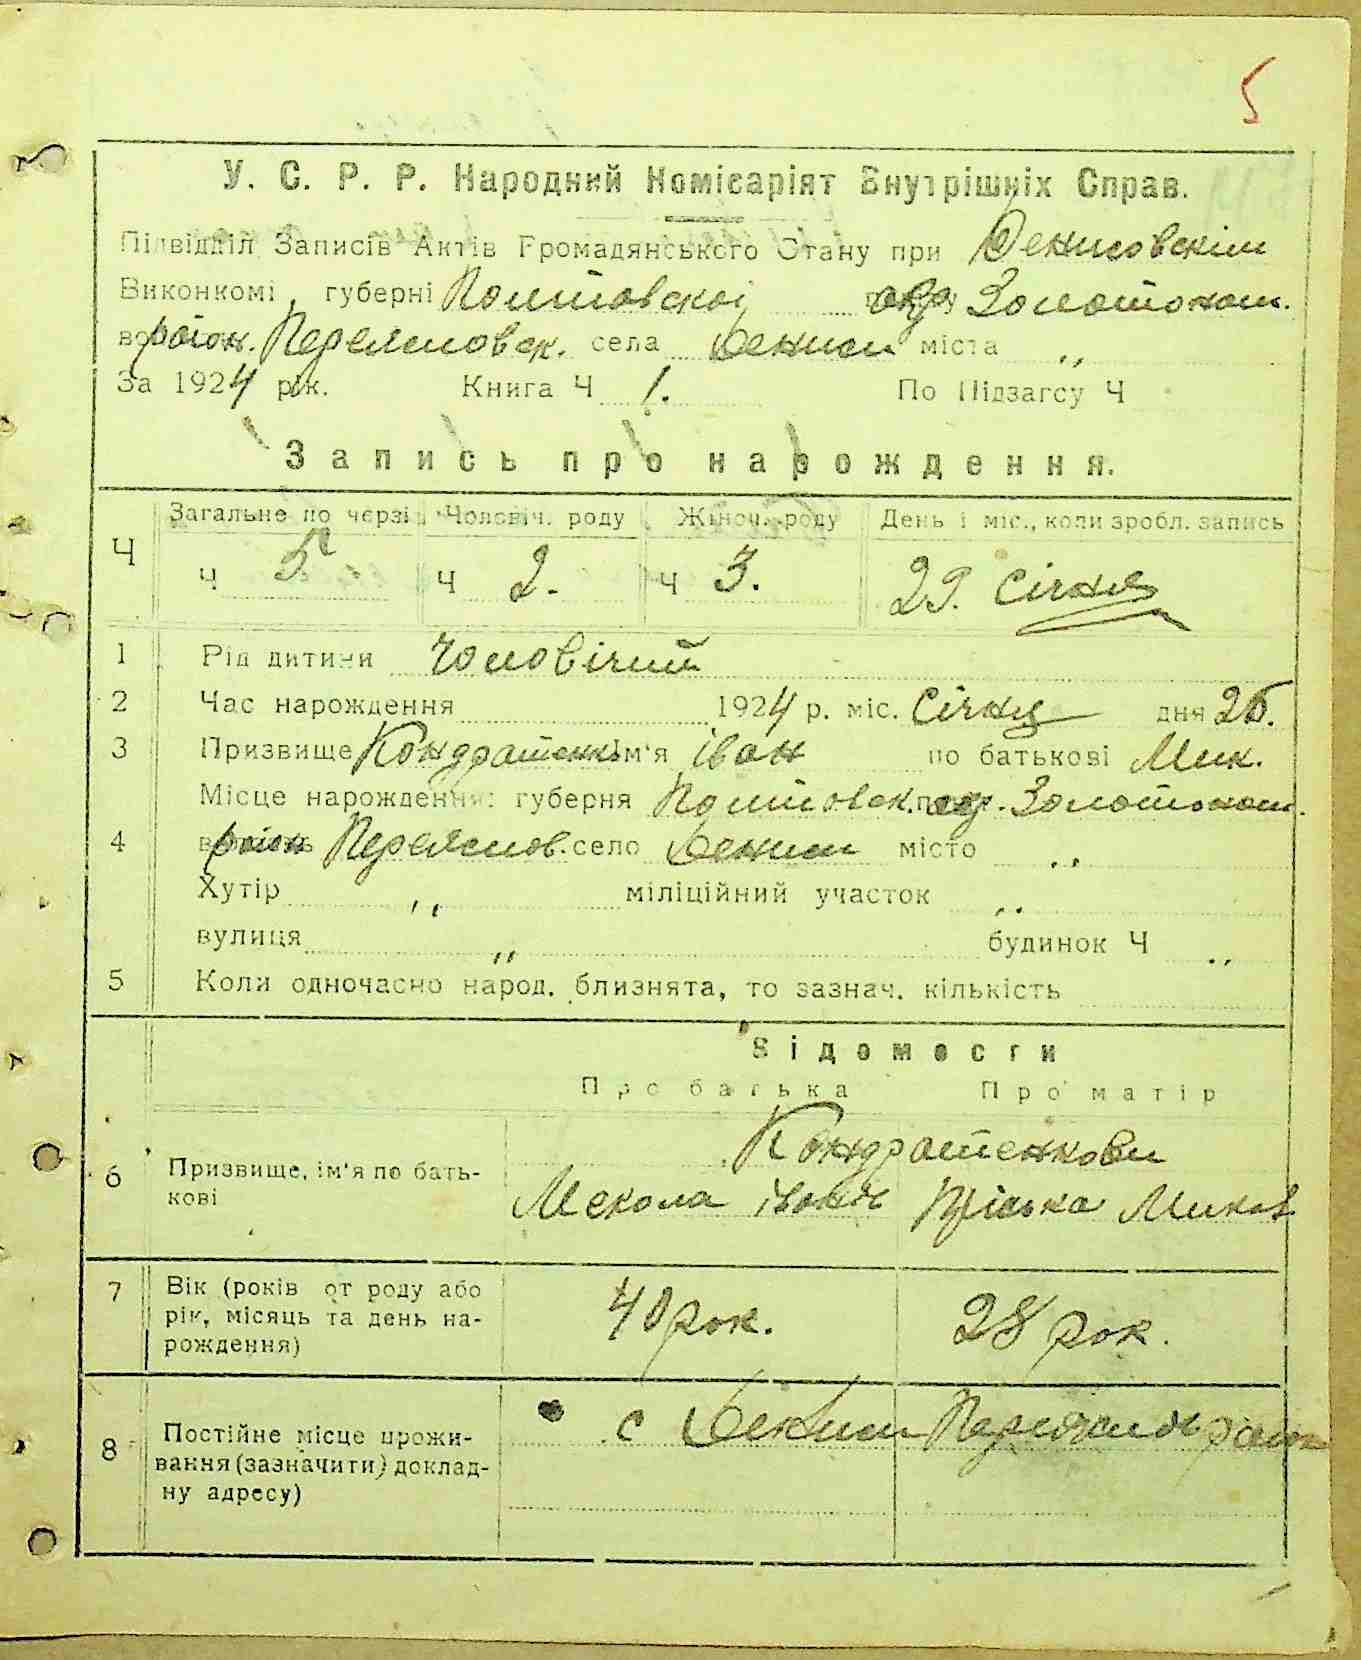 5
У. С. Р. Р. Народний Комісаріят Внутрішніх Справ.
Підвідділ Записів Актів Громадянського Стану при Денисовскім
Виконкомі, губерні Полтовскоі окр Золотоном.
район. Переясловск. села Дениси міста „
За 1924 рік. Книга Ч 1. По Підзагсу Ч
Запись про нарождення.
Загальне по черзі Чоловіч. роду Жіноч. роду День і міс., коли зробл. запись
Ч Ч 5 Ч 2. Ч 3. 29. Січня
1 Рід дитини Чоловічий
2 Час нарождення 1924 р. міс. Січня дня 26.
3 Призвище Кондратенко Ім'я Іван по батькові Мик.
Місце нарождення: губерня Полтовск. окр. Золотоном.
4 район Переяслов. село Дениси місто „
Хутір „ міліційний участок „
вулиця „ будинок Ч „
5 Коли одночасно народ. близнята, то зазнач. кількість
Відомости
Про батька Про матір
Кондратенкови
6 Призвище, ім'я по бать-
кові
Мекола Івонів Пріська Миков
7 Вік (років от роду або
рік, місяць та день на-
рождення)
40 рок. 28 рок.
8 Постійне місце прожи-
вання (зазначити) доклад-
ну адресу)
с Дениси район